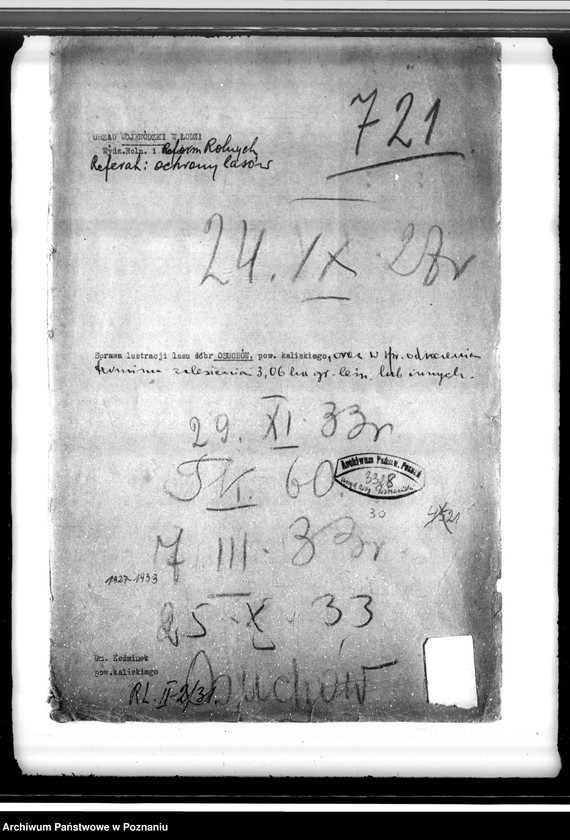 721
URZĄD WOJEWÓDZKI W ŁODZI
Wydz.Roln. i Reform Rolnych
Referat: ochrony lasów
24. IX 27r
Sprawa lustracji lasu dóbr OSUCHÓW, pow. kaliskiego, oraz w spr. odroczenia
terminu zalesienia 3,06 ha gr. leśn. lub innych.
29. XI. 33r
Archiwum Państw. Pozna
3328
60.
30
7 III. 33r
1927-1933
25. X. 33
Gm. Koźminek
pow.kaliskiego
Osuchów
RL. II-2/31.
Archiwum Państwowe w Poznaniu